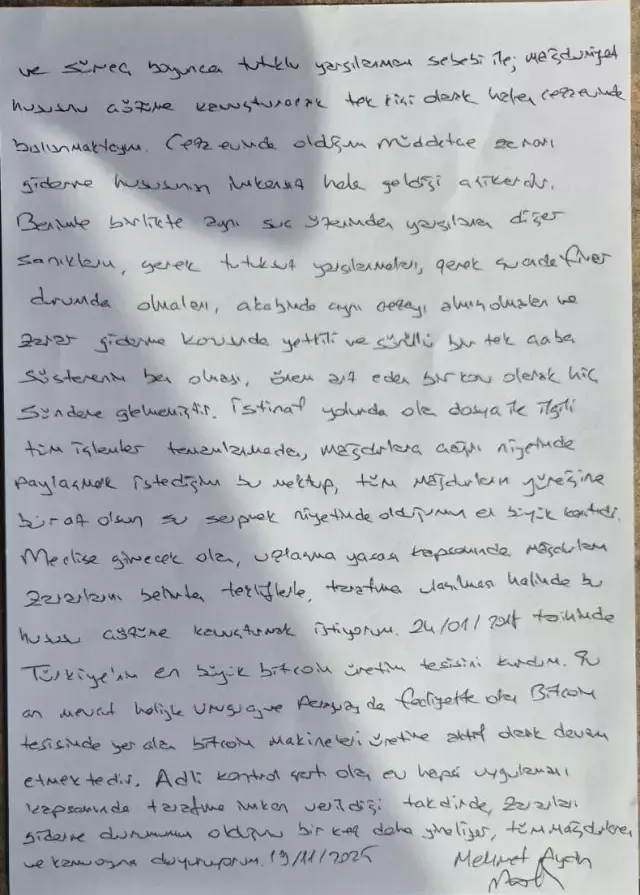 ve süreç boyunca tutuklu yargılanmam sebebi ile; mağduriyet
hususu çözüme kavuşturacak tek kişi olarak halen cezaevinde
bulunmaktayım. Cezaevinde olduğum müddetçe zararı
giderme hususunun imkansız hale geldiği aşikardır.
Benimle birlikte aynı suç üzerinden yargılanan diğer
sanıkların, gerek tutuksuz yargılanmaları, gerek şu anda firar
durumda olmaları, akabinde aynı cezayı almış olmaları ve
zarar giderme konusunda yetkili ve sürekli bir tek çaba
gösterenin ben olması, önem arz eden bir konu olarak hiç
gündeme gelmemiştir. İstinaf yolunda olan dosya ile ilgili
tüm işlemler tamamlanmadan, mağdurlara çağrı niyetinde
paylaşmak istediğim bu mektup, tüm mağdurların yüreğine
biraz olsun su serpmek niyetinde olduğumun en büyük kanıtıdır.
Meclise girecek olan, uzlaşma yasası kapsamında mağdurların
zararlarını belirten tekliflerle, tarafıma ulaşılması halinde bu
hususu çözüme kavuşturmak istiyorum. 24/01/2018 tarihinde
Türkiye'nin en büyük bitcoin üretim tesisini kurdum. Şu
an mevcut haliyle Uruguay ve Paraguay da faaliyette olan Bitcoin
tesisinde yer alan bitcoin makineleri üretime aktif olarak devam
etmektedir. Adli kontrol şartı olan ev hapsi uygulaması
kapsamında tarafıma imkan verildiği takdirde, zararları
giderme durumumun olduğunu bir kez daha yineliyor, tüm mağdurlara
ve kamuoyuna duyuruyorum. 19/11/2025
Mehmet Aydın